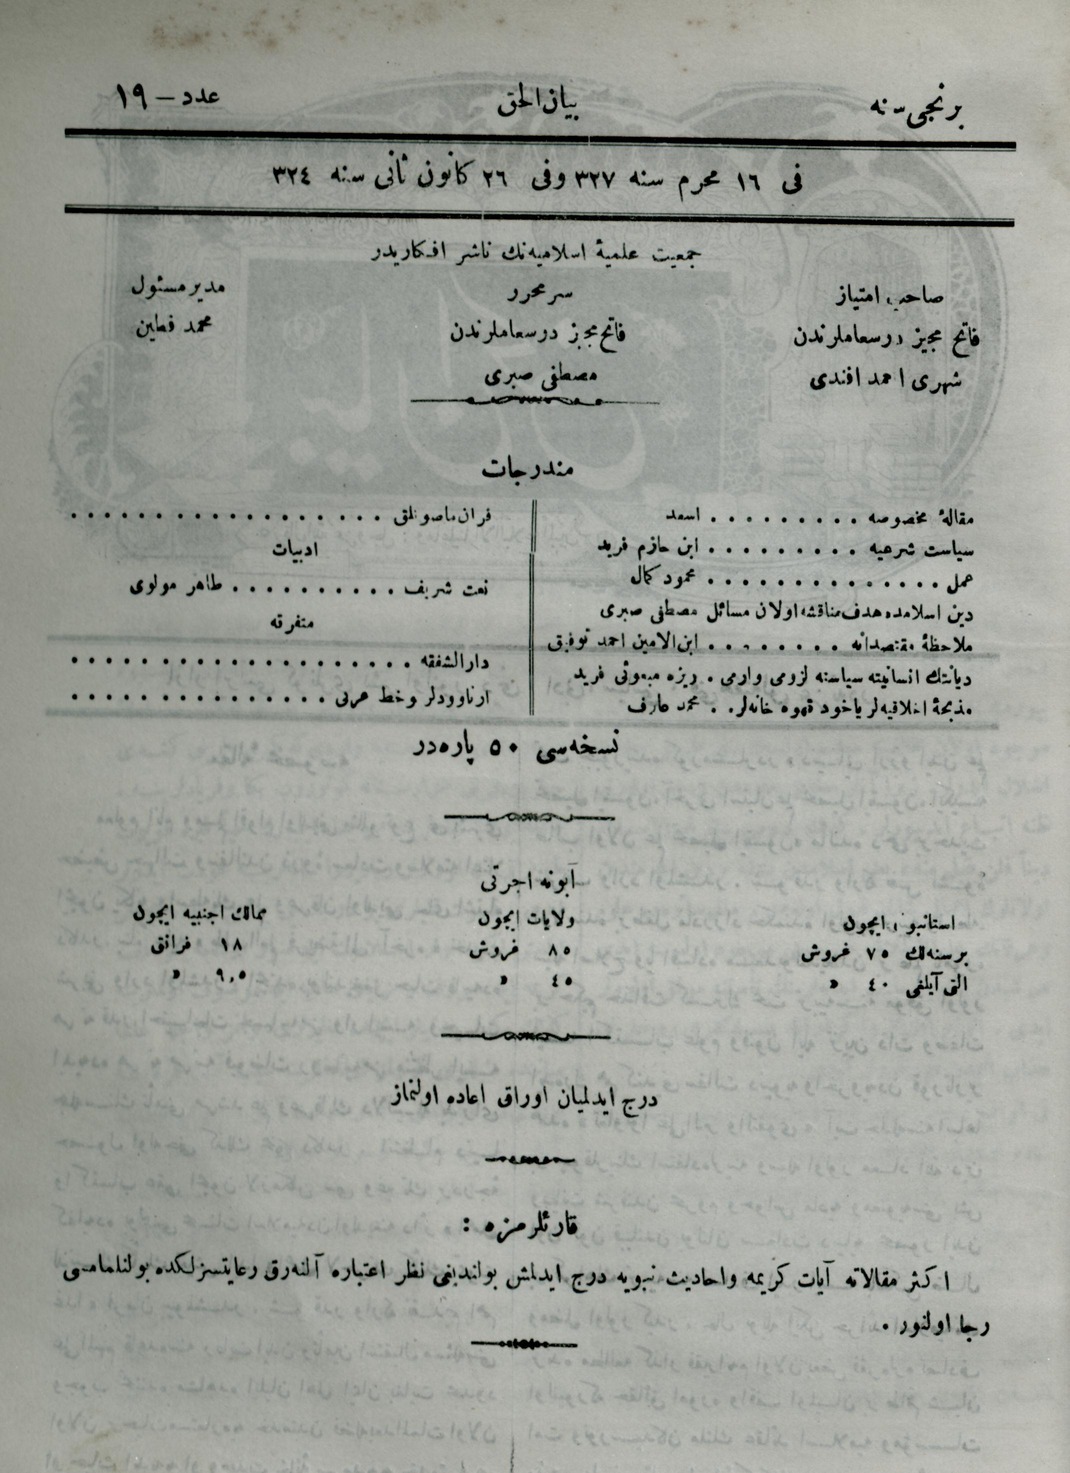 برنجی سنه
بیان الحق
عدد — ١٩
فی ١٦ محرم سنه ٣٢٧ وفی ٢٦ کانون ثانی سنه ٣٢٤
جمعیت علمیهٔ اسلامیه‌نك ناشر افکاریدر
صاحب امتیاز
فاتح مجیز درسعاملرندن
شهری احمد افندی
سر محرر
فاتح مجیز درسعاملرندن
مصطفی صبری
مدیر مسئول
محمد فطین
مندرجات
مقالهٔ مخصوصه . . . . . . . . . اسعد
سیاست شرعیه . . . . . . . . . ابن حازم فرید
عمل . . . . . . . . . . . . . . محمود کمال
دین اسلامده هدف مناقشه اولان مسائل مصطفی صبری
ملاحظهٔ مقتصدانه . . . . . . . . ابن الامین احمد توفیق
دیانتك انسانیته سیاسته لزومی وارمی . ریزه مبعوثی فرید
مذبحهٔ اخلاقیه‌لر یاخود قهوه خانه‌لر . . محمد عارف
فران‌ماصونلق . . . . . . . . . . . . . . . . . .
ادبیات
نعت شریف . . . . . . . . . . طاهر مولوی
متفرقه
دارالشفقه . . . . . . . . . . . . . . . . . . . .
ارناوودلر وخط عربی . . . . . . . . . . . . . . .
نسخه‌سی ٥٠ پاره‌در
آبونه اجرتی
استانبول ایچون
برسنه‌لك ٧٥ غروش
التی آیلغی ٤٠ »
ولایات ایچون
٨٥ غروش
٤٥ »
ممالك اجنبیه ایچون
١٨ فرانق
٩,٥ »
درج ایدلمیان اوراق اعاده اولنماز
قارئلرمزه :
اکثر مقالاته آیات کریمه واحادیث نبویه درج ایدلمش بولندیغی نظر اعتباره آلنه‌رق رعایتسزلکده بولنلمامسی
رجا اولنور .